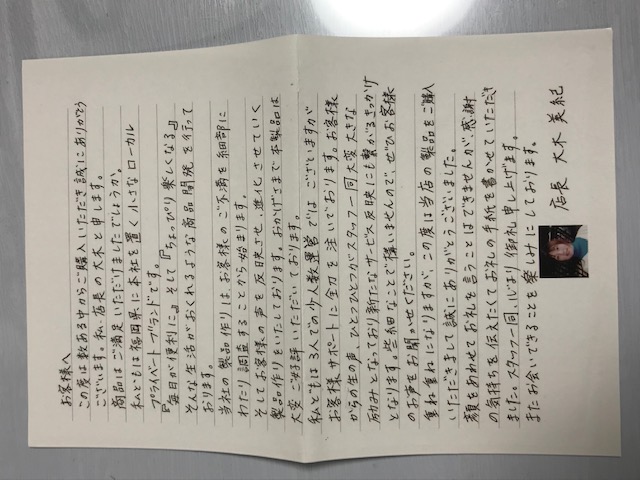 お客様へ
この度は数ある中からご購入いただき誠にありがとう
ございます。私、店長の大木と申します。
商品はご満足いただけましたでしょうか。
私どもは福岡県に本社を置く小さなローカル
プライベートブランドです。
『毎日が便利に』そして『ちょっぴり楽しくなる』
そんな生活がおくれるような商品開発を行って
おります。
当社の製品作りは、お客様のご不満を細部に
わたり調査することから始まります。
そしてお客様の声を反映させ、進化させていく
製品作りをいたしております。おかげさまで本製品は
大変ご好評いただいております。
私どもは3人での少人数運営ではございますが
お客様サポートに全力を注いでおります。お客様
からの生の声 ひとつひとつがスタッフ一同大変大きな
励みとなっており新たなサービス反映にも繋がるきっかけ
となります。些細なことで構いませんので、ぜひお客様
のお声をお聞かせください。
重ね重ねになりますが、この度は当店の製品をご購入
いただきまして誠にありがとうございました。
顔をあわせてお礼を言うことはできませんが感謝
の気持ちを伝えたくてお礼の手紙を書かせていただき
ました。スタッフ一同、心より御礼申し上げます。
またお会いできることを楽しみにしております。
店長 大木 美紀